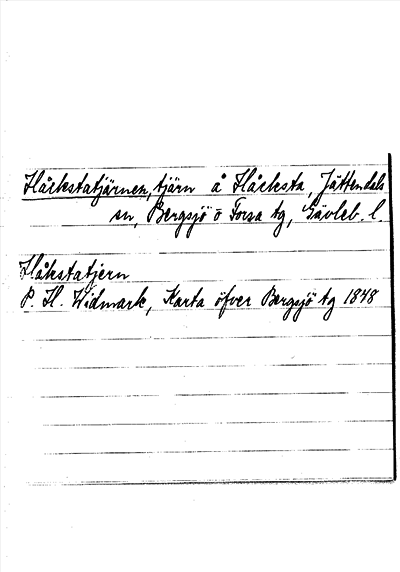 Håckstatjärnen, tjärn å Håcksta, Jättendals
sn, Bergsjö o Forsa tg, Gävleb. l.
Håkstatjern
P. H. Widmark, Karta öfver Bergsjö tg 1848